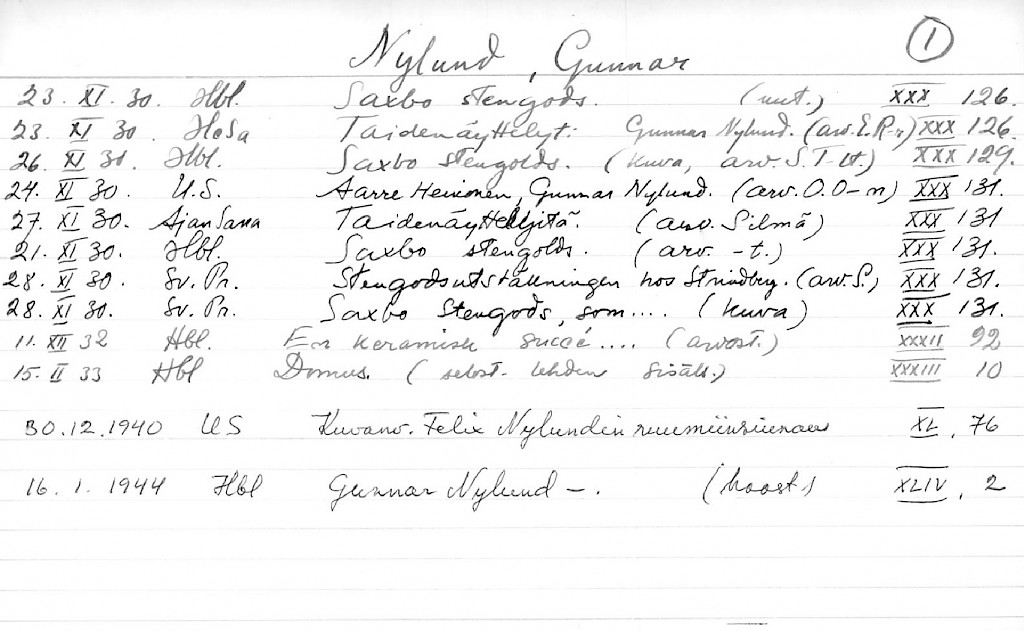 Nylund, Gunnar 1
23. XI. 30. Hbl. Saxbo stengods. (uut.) XXX 126.
23. XI 30. HeSa Taidenäyttelyt: Gunnar Nylund. (arv. E.R-r) XXX 126.
26. XI 30. Hbl. Saxbo stengolds. (kuva, arv S.T-st) XXX 129.
24. XI 30. U.S. Aarre Heinonen, Gunnar Nylund. (arv. O.O-n) XXX 131.
27. XI 30. Ajan Sana Taidenäyttelyitä. (arv. Silmä) XXX 131
21. XI 30. Hbl. Saxbo stengolds. (arv. -t.) XXX 131.
28. XI 30. Sv. Pr. Stengodsutställningen hos Strindberg. (arv. S.) XXX 131.
28. XI 30. Sv. Pr. Saxbo Stengods, som.... (kuva) XXX 131.
11. XII 32 Hbl. En keramisk succé.... (arvost.) XXXII 92
15. II 33 Hbl Domus. (selost. lehden sisält.) XXXIII 10
30.12.1940 US Kuvanv. Felix Nylundin XL, 76
16. 1. 1944 Hbl Gunnar Nylund -. XLIV, 2